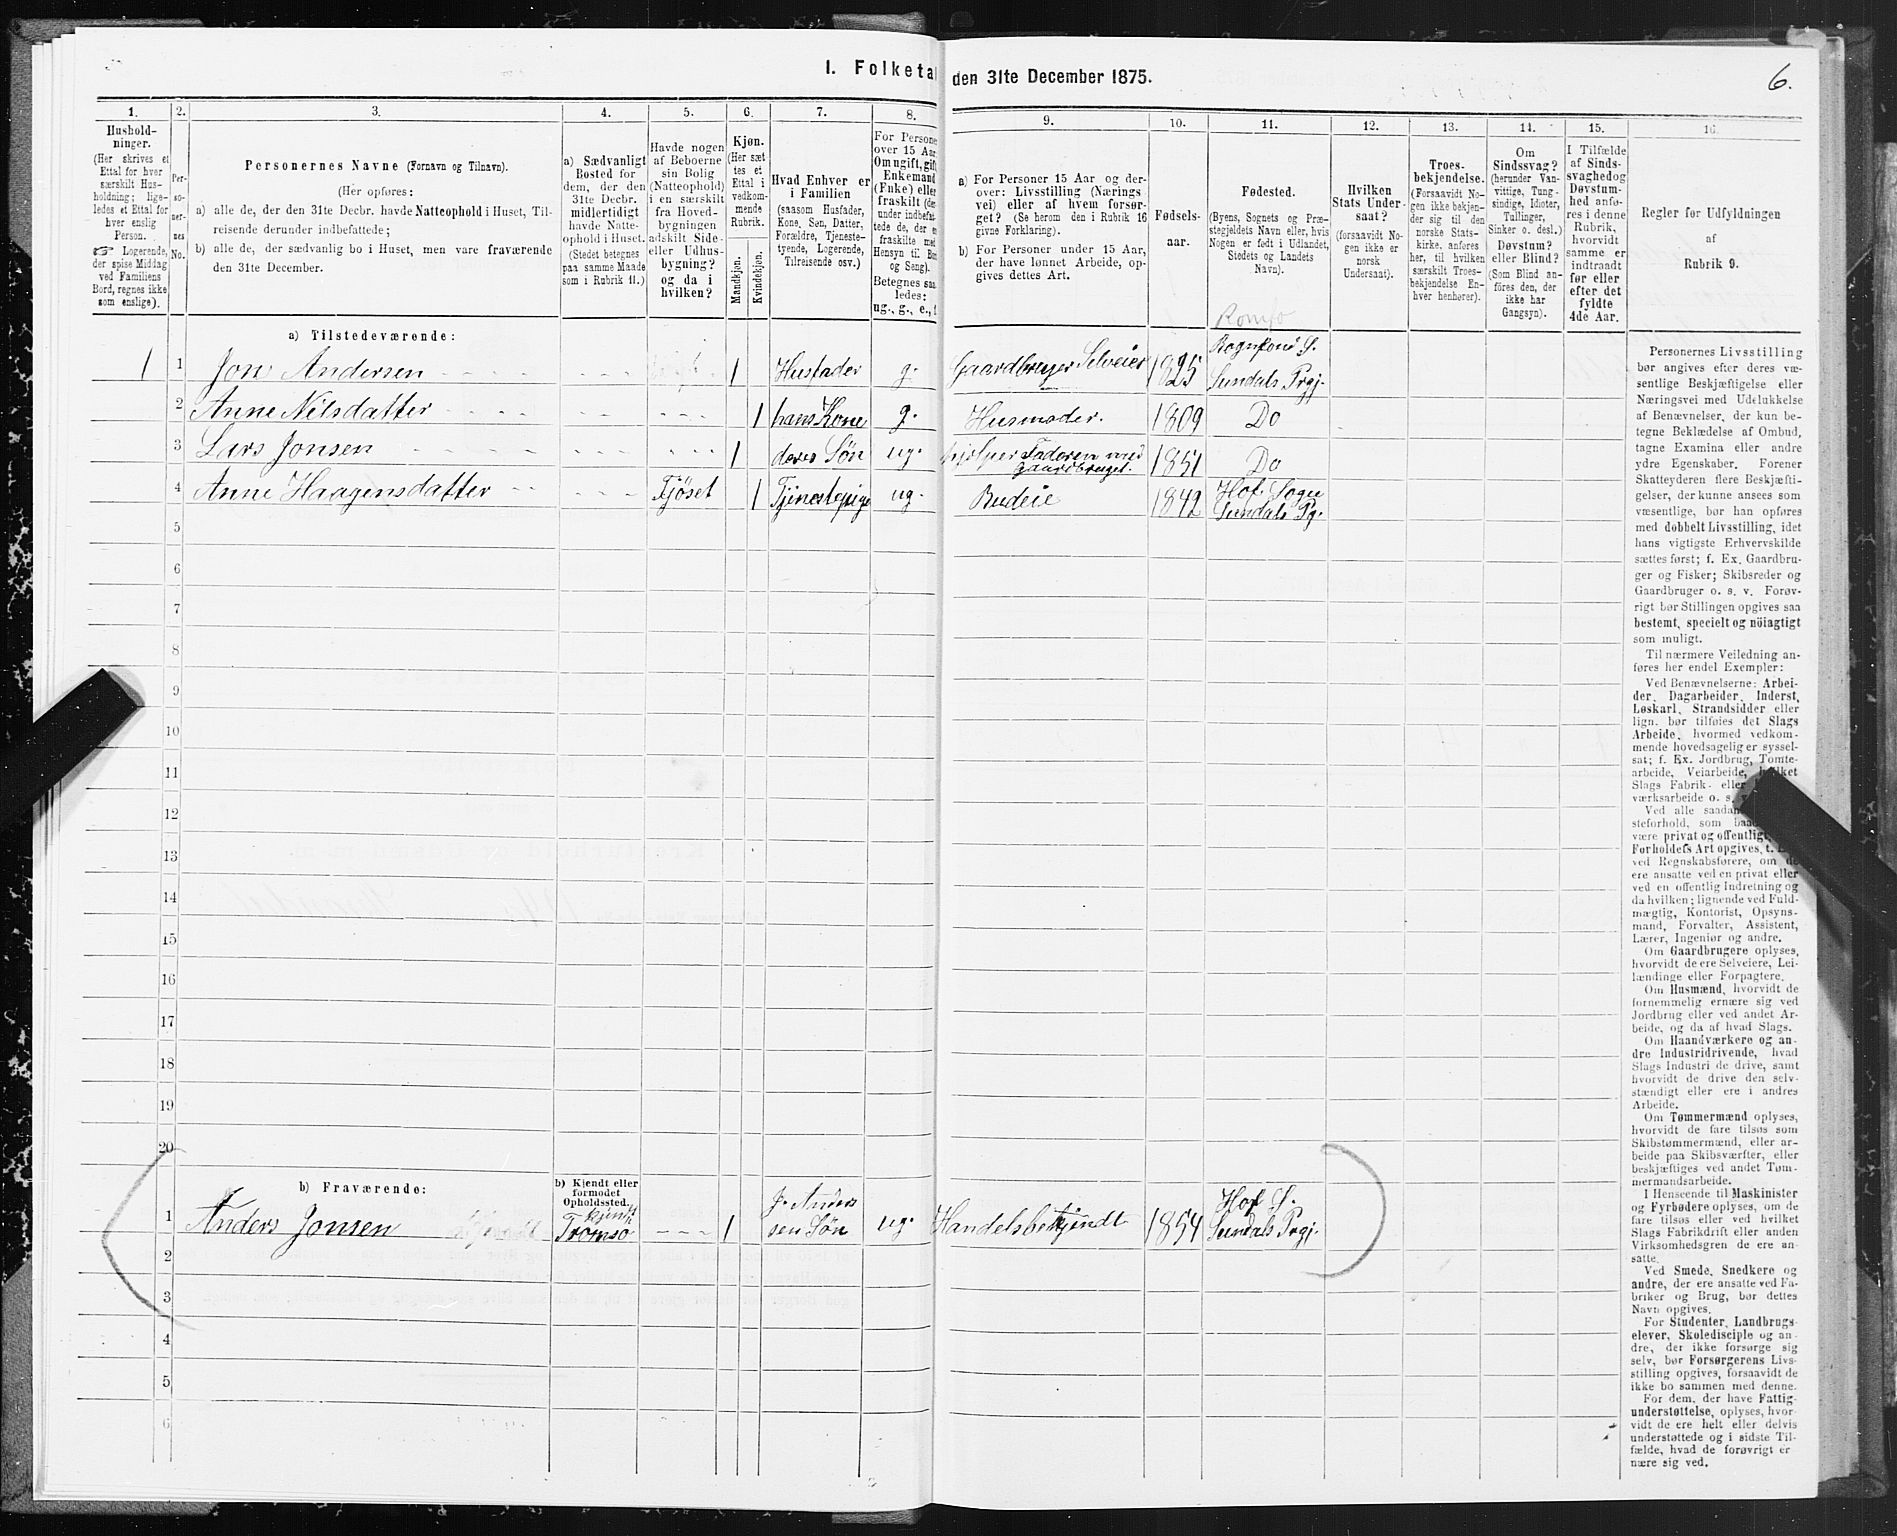 I. Folketal den 31te December 1875.
6.
1.
Hushold-
ninger.
(Her skrives et
Ettal for hver
særskilt Hus-
holdning; lige-
ledes et Ettal for
hver enslig
Person.
☞ Logerende,
der spise Middag
ved Familiens
Bord, regnes ikke
som enslige).
2.
Per-
so-
ner-
nes
No.
3.
Personernes Navne (Fornavn og Tilnavn).
(Her opføres:
a) alle de, der den 31te Decbr. havde Natteophold i Huset, Til-
reisende derunder indbefattede;
b) alle de, der sædvanlig bo i Huset, men vare fraværende
den 31te December.
4.
a) Sædvanligt
Bosted for
dem, der den
31te Decbr.
midlertidigt
havde Natte-
ophold i Huset.
(Stedet betegnes
paa samme Maade
som i Rubrik 11.)
5.
Havde nogen
af Beboerne
sin Bolig
(Natteophold)
i en særskilt
fra Hoved-
bygningen
adskilt Side-
eller Udhus-
bygning?
og da i
hvilken?
6.
Kjøn.
(Her sæt-
tes et
Ettal i
vedkom-
mende
Rubrik.
Mandekjøn.
Kvindekjøn.
7.
Hvad Enhver er
i Familien
(saasom Husfader,
Kone, Søn, Datter,
Forældre, Tjeneste-
tyende, Logerende,
Tilreisende osv.)
8.
For Persone
over 15 Aar
Om ugift, gif
Enkemand
(Enke) elle
fraskilt (der
under indbefat-
tede de, der e
fraskilte med
Hensyn til Bor
og Seng).
Betegnes saa
ledes:
ug., g., e., f
9.
a) For Personer 15 Aar og der-
over: Livsstilling (Nærings
vei) eller af hvem forsør-
get? (Se herom den i Rubrik 16
givne Forklaring).
b) For Personer under 15 Aar,
der have lønnet Arbeide, op-
gives dettes Art.
10.
Fødsels-
aar.
11.
Fødested.
(Byens, Sognets og Præ-
stegjeldets Navn eller, hvis
Nogen er født i Udlandet,
Stedets og Landets
Navn).
12.
Hvilken
Stats Under-
saat?
(forsaavidt No-
gen ikke er
norsk
Undersaat).
13.
Troes-
bekjendelse.
(Forsaavidt No-
gen ikke bekjen-
der sig til den
norske Stats-
kirke, anføres
her, til hvilken
særskilt Troes-
bekjendelse En-
hver henhører).
14.
Om
Sindssvag?
(herunder Van-
vittige, Tung-
sindige, Idioter,
Tullinger,
Sinker o. desl.)
Døvstum?
eller Blind?
(Som Blind an-
føres den, der
ikke har
Gangsyn).
15.
I Tilfælde
af Sinds-
svaghed og
Døvstum-
hed anfø-
res i denne
Rubrik,
hvorvidt
samme er
indtraadt
før eller
efter det
fyldte
4de Aar.
16.
Regler før Udfyldningen
af
Rubrik 9.
a) Tilstedeværende:
Romfo
1 1 Jon Andersen 1 Husfader g. Gaardbruger Selveier 1825 Romfons S. Sundals Prgj.
2 Anne Nilsdatter 1 hans Kone g. Husmoder. 1809 Do
3 Lars Jonsen 1 deres Søn ug. hjelper Faderen med gaardbruget. 1851 Do
4 Anne Haagensdatter Fjöset 1 Tjenestepige ug. Budeie 1842 Hof Sogn Sundals Pg.
5
6
7
8
9
10
11
12
13
14
15
16
17
18
19
20
b) Fraværende:
b) Kjendt eller
formodet
Opholdssted.
1 Anders Jonsen kjendt Tromsø 1 J. Andersen Søn ug. Handelsbetjendt 1854 Hof S. Sundals Prgj.
2
3
4
5
6
Personernes Livsstilling
bør angives efter deres væ-
sentlige Beskjæftigelse eller
Næringsvei med Udelukkelse
af Benævnelser, der kun be-
tegne Beklædelse af Ombud,
tagne Examina eller andre
ydre Egenskaber. Forener
Skatteyderen flere Beskjæfti-
gelser, der kunne ansees som
væsentlige, bør han opføres
med dobbelt Livsstilling, idet
hans vigtigste Erhvervskilde
sættes først; f. Ex. Gaardbru-
ger og Fisker; Skibsreder og
Gaardbruger o. s. v. Forøv-
rigt bør Stillingen opgives saa
bestemt, specielt og nöiagtigt
som muligt.
Til nærmere Veiledning an-
føres her endel Exempler:
Ved Benævnelserne: Arbei-
der, Dagarbeider, Inderst,
Løskarl, Strandsidder eller
lign. bør tilføies det Slags
Arbeide, hvormed vedkom-
mende hovedsagelig er syssel-
sat; f. Ex. Jordbrug, Tomte-
arbeide, Veiarbeide, hvilket
Slags Fabrik- eller
værksarbeide o. s. v.
Ved alle saadan
steforhold, som baa
være privat og offentligt,
Forholdets Art opgives, t. Ex.
ved Regnskabsførere, om de
ere ansatte ved en privat eller
ved en offentlig Indretning og
da hvilken; lignende ved Fuld-
mægtig, Kontorist, Opsyns-
mand, Forvalter, Assistent,
Lærer, Ingeniør og andre.
Om Gaardbrugere oplyses,
hvorvidt de ere Selveiere, Lei-
lændinge eller Forpagtere.
Om Husmænd, hvorvidt de
fornemmelig ernære sig ved
Jordbrug eller ved andet Ar-
beide, og da af hvad Slags.
Om Haandværkere og an-
dre Industridrivende, hvad
Slags Industri de drive, samt
hvorvidt de drive den selv-
stændigt eller ere i andres
Arbeide.
Om Tømmermænd oplyses,
hvorvidt de fare tilsøs som
Skibstømmermænd, eller ar-
beide paa Skibsværfter, eller
beskjæftiges ved andet Tøm-
mermandsarbeide.
I Henseende til Maskinister
og Fyrbødere oplyses, om de
fare tilsøs eller ved hvilket
Slags Fabrikdrift eller anden
Virksomhedsgren de ere an-
satte.
Ved Smede, Snedkere og
andre, der ere ansatte ved Fa-
briker og Brug, bør dettes
Navn opgives.
For Studenter, Landbrugs-
elever, Skoledisciple og an-
dre, der ikke forsørge sig
selv, bør Forsørgerens Livs-
stilling opgives, forsaavidt de
ikke bo sammen med denne.
For dem, der have Fattig-
understøttelse, oplyses, hvor-
vidt de ere helt eller delvis
understøttede og i sidste Til-
fælde, hvad de forøvrigt er-
nære sig ved.